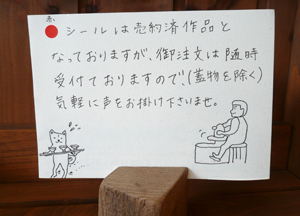 赤
シールは売約済作品と
なっておりますが、御注文は随時
受付ておりますので、(蓋物を除く)
気軽に声をお掛け下さいませ。